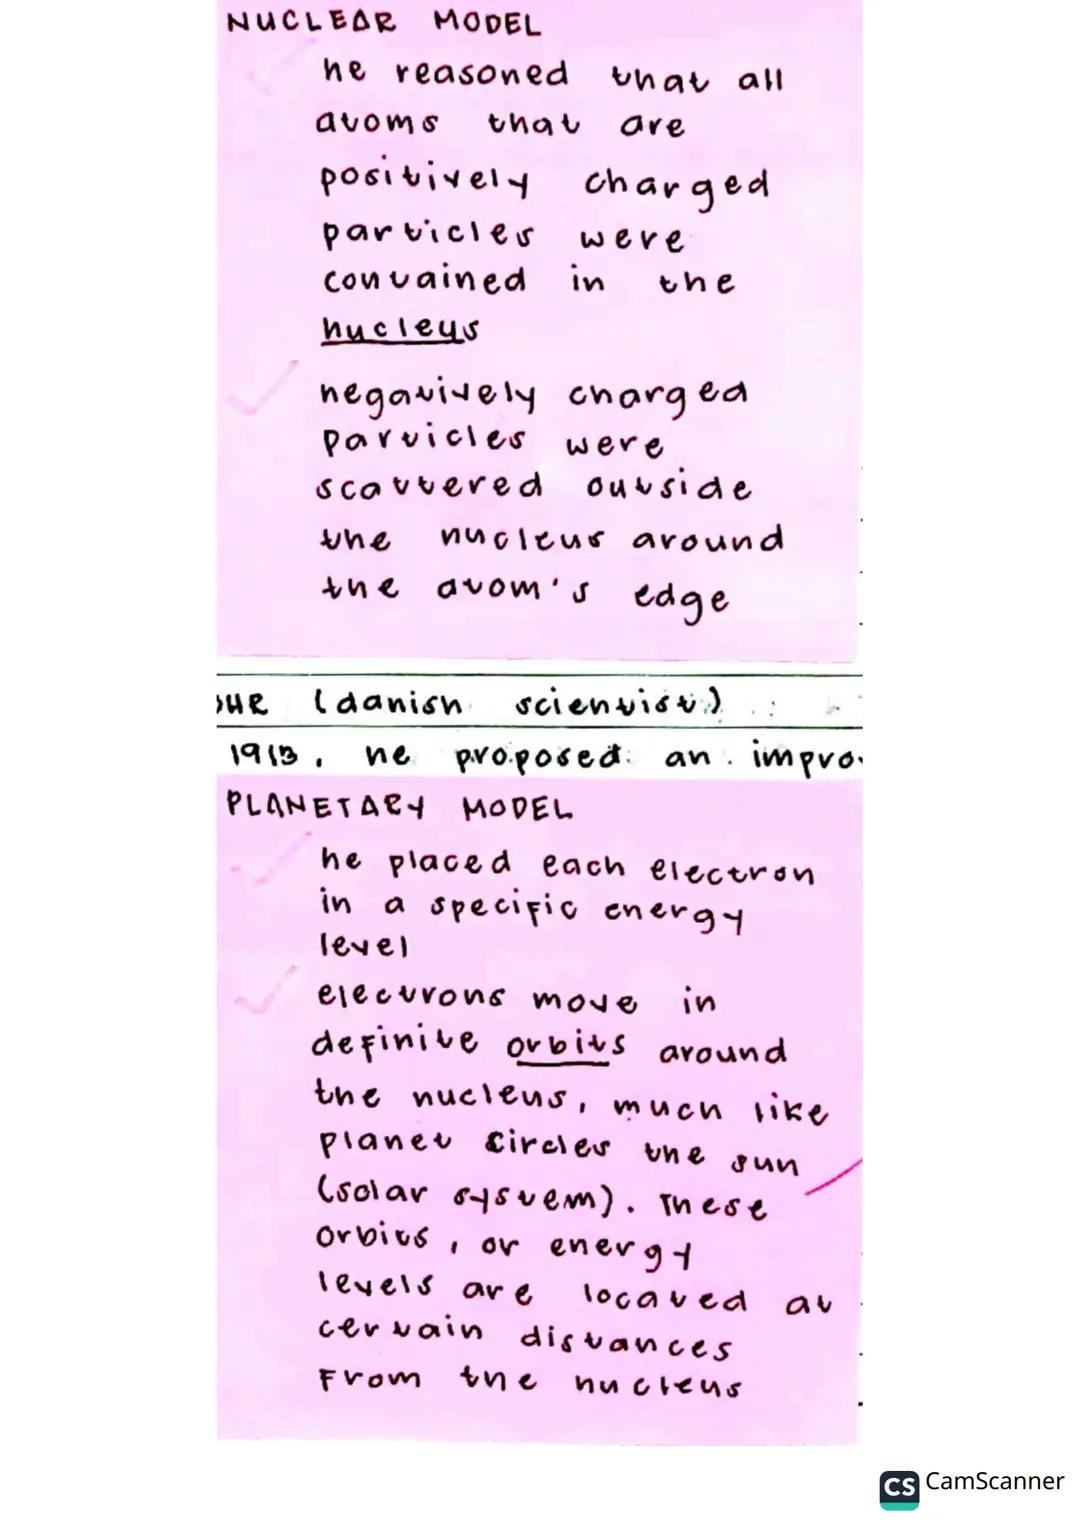 NUCLEAR MODEL
he reasoned that all
atoms that are
positively charged
particles were
contained in the
nucleus
negatively charged
particles were
scattered outside
the nucleus around
the atom's edge
OHR (danish scientist)
1913, he proposed an impro
PLANETARY MODEL
he placed each electron
in a specific energy
level
electrons move in
definite orbits around
the nucleus, much like
planet circles the sun
(solar system). These
orbits, or energy
levels are located at
certain distances
From the nucleus
CS CamScanner